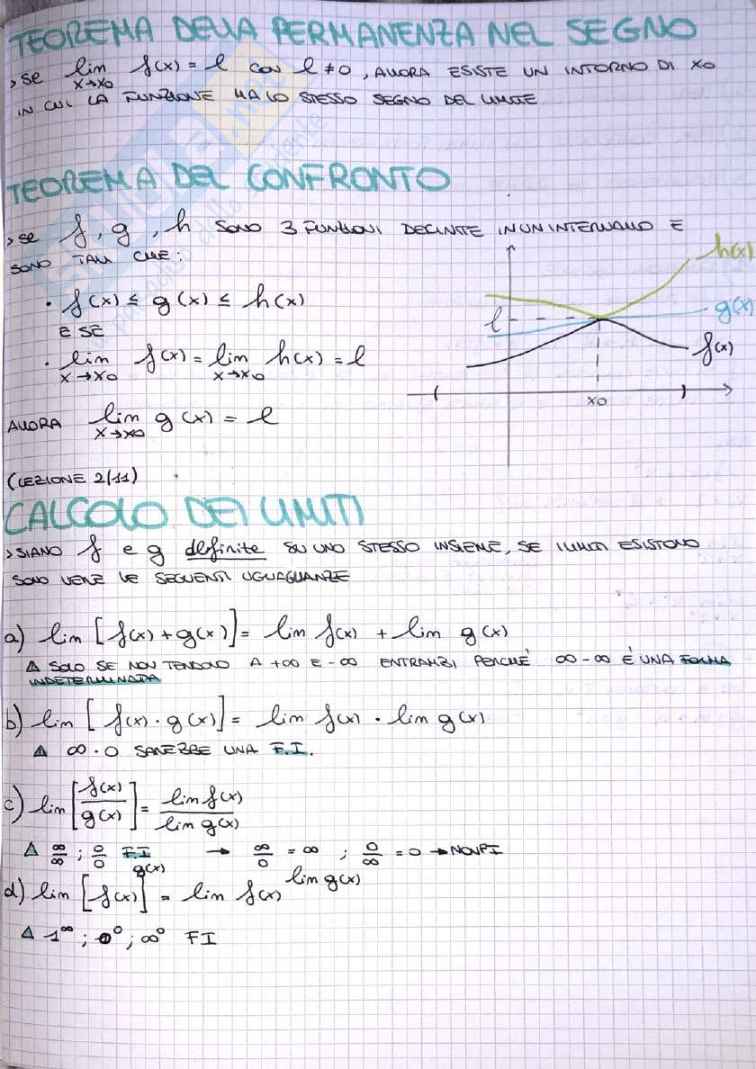 TEOREMA DELLA PERMANENZA NEL SEGNO
> SE lim x→x0 f(x) = l con l ≠ 0, ALLORA ESISTE UN INTORNO DI x0
IN CUI LA FUNZIONE HA LO STESSO SEGNO DEL LIMITE
TEOREMA DEL CONFRONTO
> se f, g, h SONO 3 FUNZIONI DEFINITE IN UN INTERVALLO E
SONO TALI CHE:
• f(x) ≤ g(x) ≤ h(x)
E SE
• lim x→x0 f(x) = lim x→x0 h(x) = l
ALLORA lim x→x0 g(x) = l
h(x)
g(x)
f(x)
l
x0
(LEZIONE 2/11)
CALCOLO DEI LIMITI
> SIANO f e g definite SU UNO STESSO INSIEME, SE I LIMITI ESISTONO
SONO VERE LE SEGUENTI UGUAGLIANZE
a) lim [f(x) + g(x)] = lim f(x) + lim g(x)
Δ SOLO SE NON TENDONO A +∞ E -∞ ENTRAMBI PERCHÉ ∞-∞ È UNA FORMA
INDETERMINATA
b) lim [f(x) · g(x)] = lim f(x) · lim g(x)
Δ ∞ · 0 SAREBBE UNA F.I.
c) lim [f(x)/g(x)] = lim f(x)/lim g(x)
Δ ∞/∞ ; 0/0 F.I → ∞/0 = ∞ ; 0/∞ = 0 → NO FI
d) lim [f(x)]^g(x) = lim f(x)^lim g(x)
Δ 1^∞ ; 0^0 ; ∞^0 FI